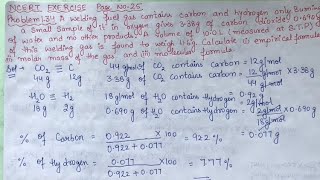 NCERT EXERCISE Page No-25
Problem 1.34 A welding fuel gas contains carbon and hydrogen only. Burning
a small Sample of it in oxygen gives 3.38g of carbon dioxide 0.690g
of water and no other products. A volume of 10.0L (measured at S.T.P)
of this welding gas is found to weigh 11.6g. Calculate i) empirical formula
ii) molar mass of the gas and iii) molecular formula.
Sol → CO₂ ≡ C
44g 12g
44 g/mol of CO₂ contains carbon = 12g/mol
3.38g of CO₂ contains carbon = 12 g/mol / 44 g/mol × 3.38g
= 0.92g
H₂O ≡ H₂
18g 2g
18g/mol of H₂O contains Hydrogen = 2g/mol
0.690g of H₂O contains Hydrogen = 2g/mol / 18g/mol × 0.690g
= 0.077g
% of Carbon = 0.922 / 0.922 + 0.077 × 100 = 92.2%
% of Hydrogen = 0.077 / 0.922 + 0.077 × 100 = 7.77%